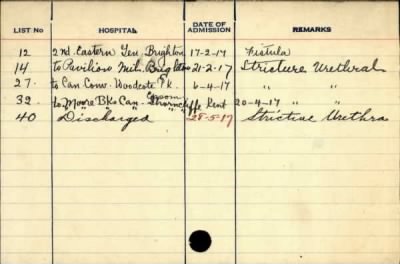 LIST No HOSPITAL DATE OF ADMISSION REMARKS
12 2nd. Eastern Gen. Brighton 17-2-17 Fistula
14 to Pavilion Mil. Brighton 21-2-17 Stricture Urethral
27 to Can Conv. Woodcote Pk. Epsom 6-4-17 " "
32 to Moore Bks Can. Shorncliffe Kent 20-4-17 " "
40 Discharged 28-5-17 Strictive Urethra